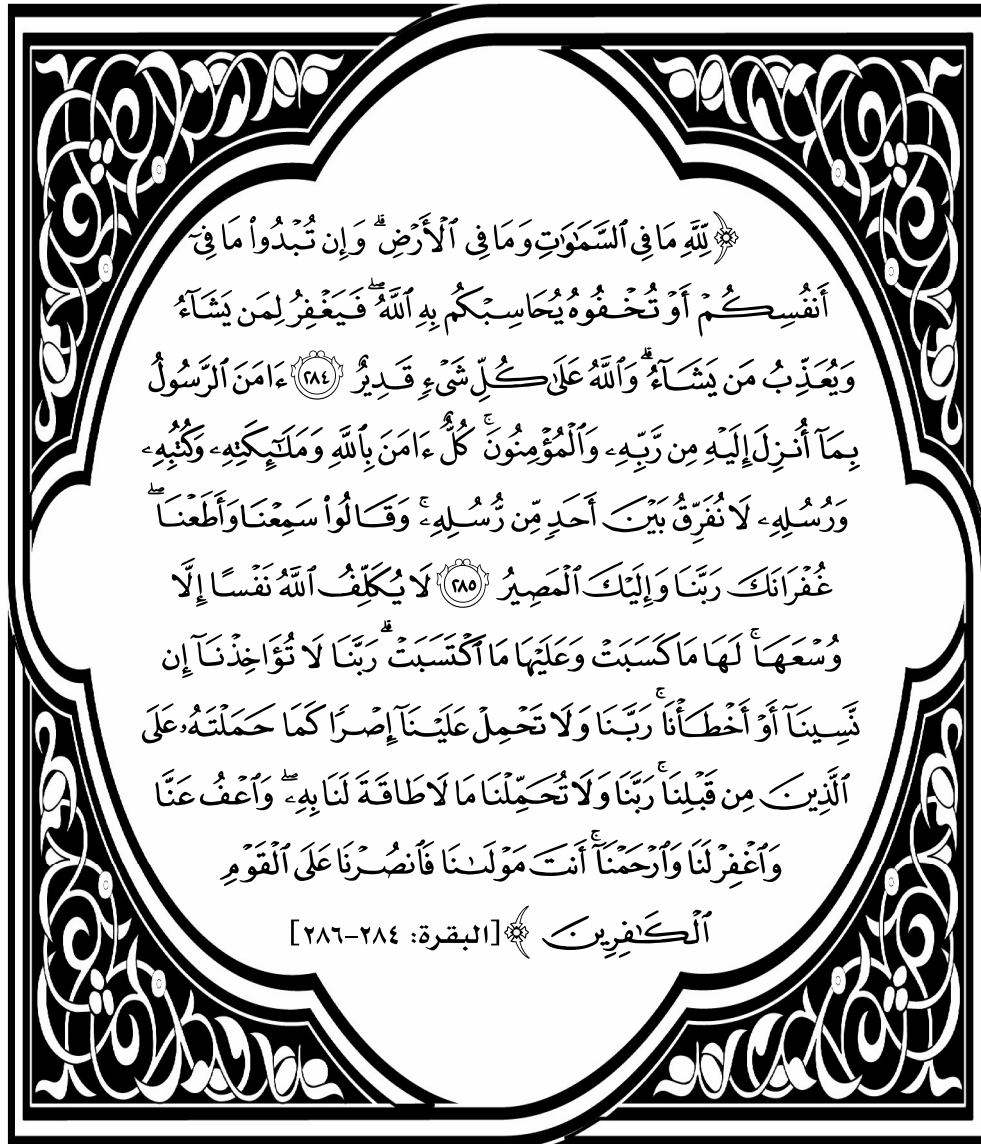 ﴿لِّلَّهِ مَا فِى ٱلسَّمَٰوَٰتِ وَمَا فِى ٱلْأَرْضِ ۗ وَإِن تُبْدُوا۟ مَا فِىٓ
أَنفُسِكُمْ أَوْ تُخْفُوهُ يُحَاسِبْكُم بِهِ ٱللَّهُ ۖ فَيَغْفِرُ لِمَن يَشَآءُ
وَيُعَذِّبُ مَن يَشَآءُ ۗ وَٱللَّهُ عَلَىٰ كُلِّ شَىْءٍ قَدِيرٌ ٢٨٤ ءَامَنَ ٱلرَّسُولُ
بِمَآ أُنزِلَ إِلَيْهِ مِن رَّبِّهِۦ وَٱلْمُؤْمِنُونَ ۚ كُلٌّ ءَامَنَ بِٱللَّهِ وَمَلَٰٓئِكَتِهِۦ وَكُتُبِهِۦ
وَرُسُلِهِۦ لَا نُفَرِّقُ بَيْنَ أَحَدٍ مِّن رُّسُلِهِۦ ۚ وَقَالُوا۟ سَمِعْنَا وَأَطَعْنَا ۖ
غُفْرَانَكَ رَبَّنَا وَإِلَيْكَ ٱلْمَصِيرُ ٢٨٥ لَا يُكَلِّفُ ٱللَّهُ نَفْسًا إِلَّا
وُسْعَهَا ۚ لَهَا مَا كَسَبَتْ وَعَلَيْهَا مَا ٱكْتَسَبَتْ ۗ رَبَّنَا لَا تُؤَاخِذْنَآ إِن
نَّسِينَآ أَوْ أَخْطَأْنَا ۚ رَبَّنَا وَلَا تَحْمِلْ عَلَيْنَآ إِصْرًا كَمَا حَمَلْتَهُۥ عَلَى
ٱلَّذِينَ مِن قَبْلِنَا ۚ رَبَّنَا وَلَا تُحَمِّلْنَا مَا لَا طَاقَةَ لَنَا بِهِۦ ۖ وَٱعْفُ عَنَّا
وَٱغْفِرْ لَنَا وَٱرْحَمْنَآ ۚ أَنتَ مَوْلَىٰنَا فَٱنصُرْنَا عَلَى ٱلْقَوْمِ
ٱلْكَٰفِرِينَ ﴾ [البقرة: ٢٨٤-٢٨٦]